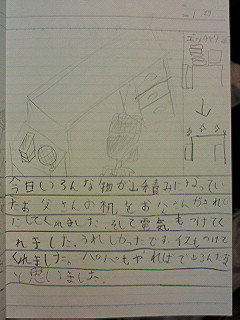 今日いろんな物が山積みになってい
たお父さんの机をお父さんがきれい
にしてくれました。そして電気もつけてく
れました。うれしかったです。イスもつけて
くれました。パパもやればできるんだな
と思いました。